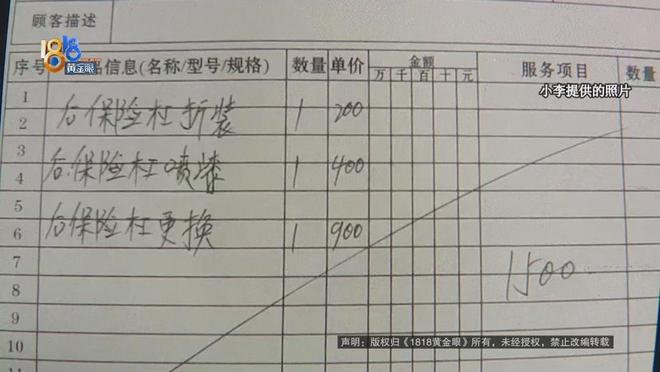 顾客描述
1818
黄金眼
序号 品信息(名称/型号/规格) 数量 单价 金额 服务项目 数量
万 千 百 十 元
小李提供的照片
1
2 后保险杠折装 1 200
3
4 后保险杠喷漆 1 400
5
6 后保险杠更换 1 900
7
8 1500
9
10
11
声明：版权归《1818黄金眼》所有，未经授权，禁止改编转载